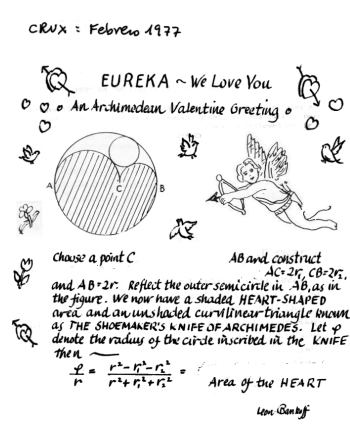 CRUX = Febrero 1977
EUREKA ~ We Love You
An Archimedean Valentine Greeting
A
C
B
Choose a point C AB and construct
AC = 2r₁, CB = 2r₂,
and AB = 2r. Reflect the outer semicircle in AB, as in
the figure. We now have a shaded HEART-SHAPED
area and an unshaded curvilinear triangle known
as THE SHOEMAKER'S KNIFE OF ARCHIMEDES. Let ρ
denote the radius of the circle inscribed in the KNIFE
then —
ρ/r = (r² - r₁² - r₂²)/(r² + r₁² + r₂²) =
Area of the HEART
Leon Bankoff